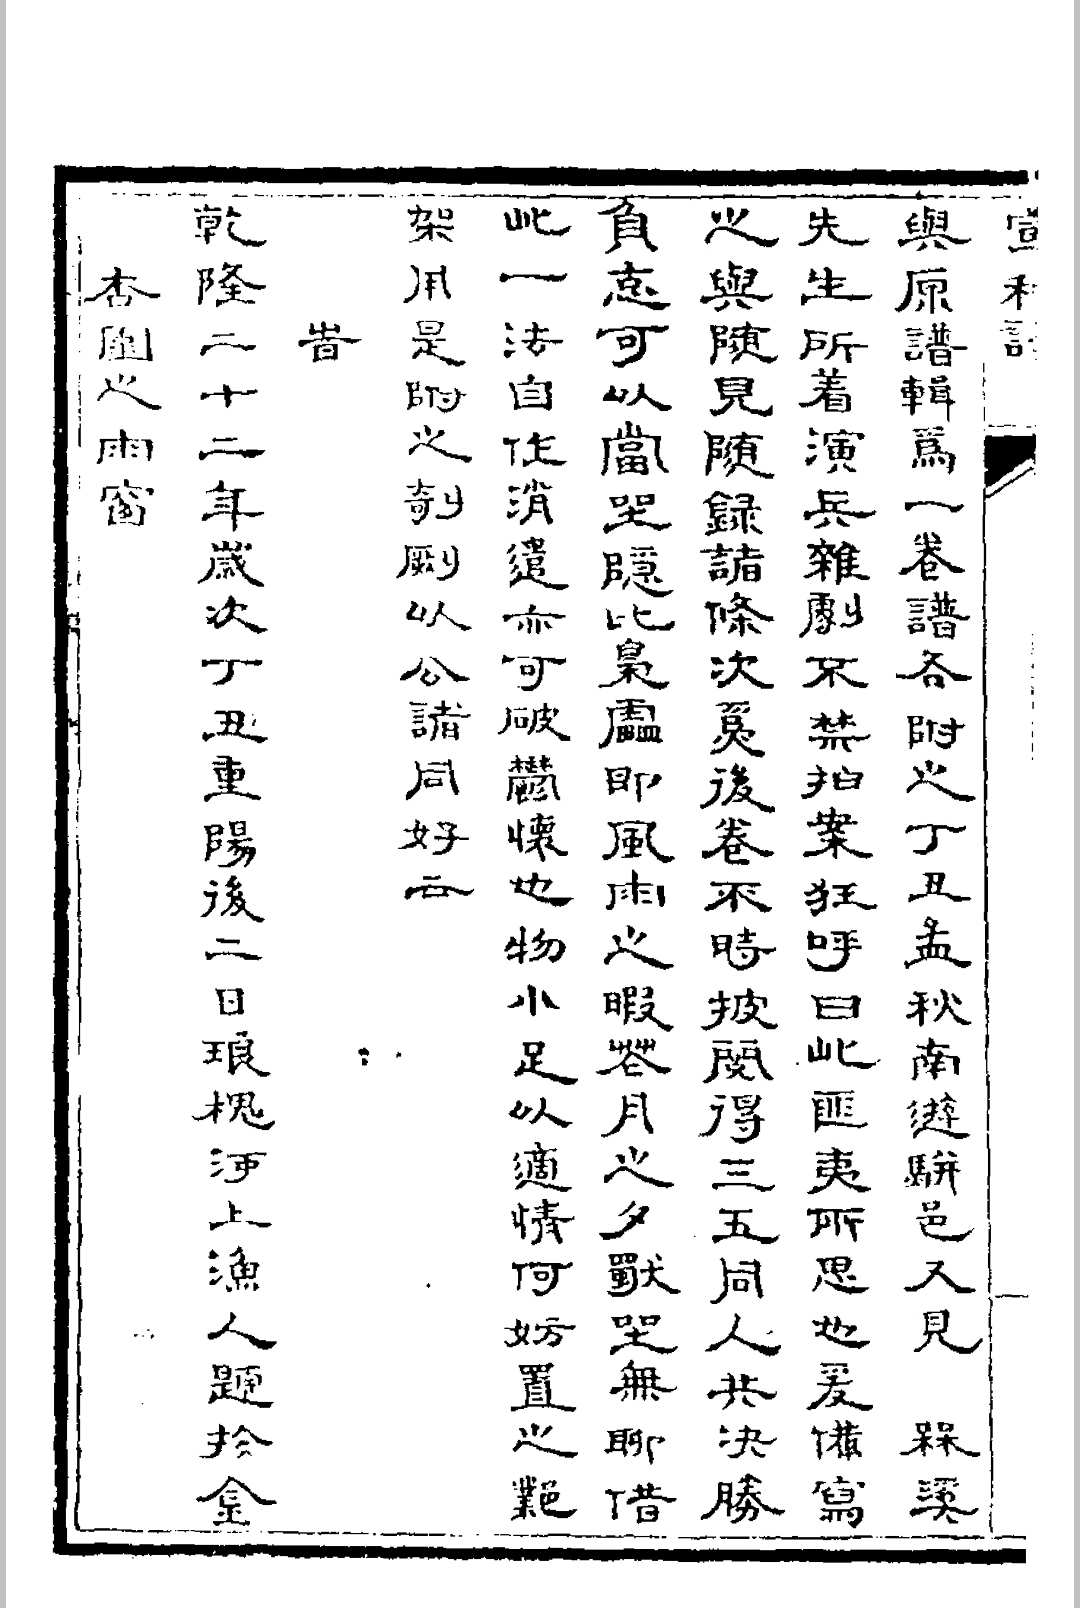 宣和譜
與原譜輯爲一卷譜各附之丁丑孟秋南遊駢邑又見　槑溪
先生所着演兵雜劇不禁拍案狂呼曰此匪夷所思也爰備寫
之與随見随録諸條次後卷不時披閱得三五同人共决勝
負可以當坐隱比梟盧即風雨之暇花月之夕獨坐無聊借
此一法自作消遣亦可破鬱懷也物小足以適情何妨置之鄴
架用是附之剞劂以公諸同好云
旹
乾隆二十二年歲次丁丑重陽後二日琅槐河上漁人題於金
杏園之雨窗